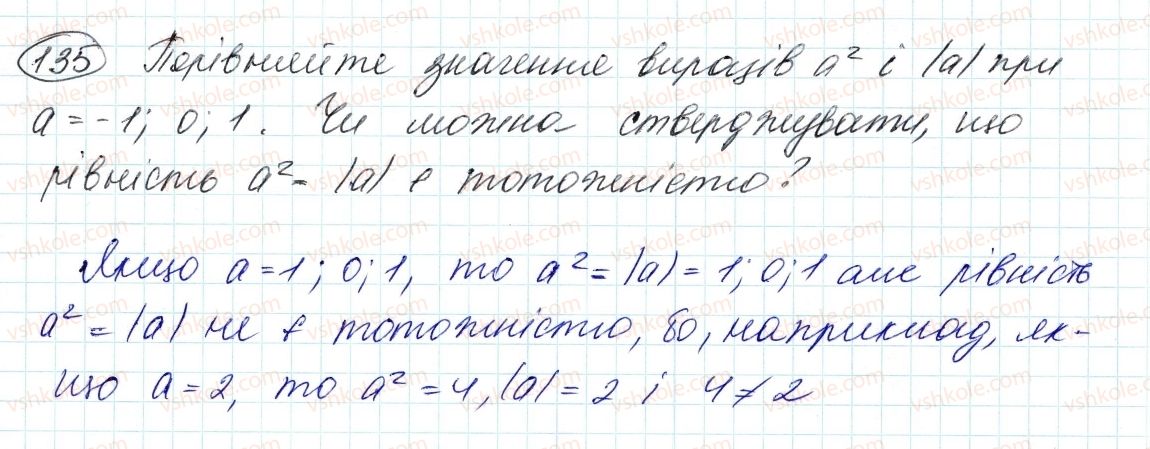 135 Порівняйте значення виразів a² і |a| при
a = -1; 0; 1. Чи можна стверджувати, що
рівність a² = |a| є тотожністю?
Якщо a = 1; 0; 1, то a² = |a| = 1; 0; 1 але рівність
a² = |a| не є тотожністю, бо, наприклад, як-
що a = 2, то a² = 4, |a| = 2 і 4 ≠ 2